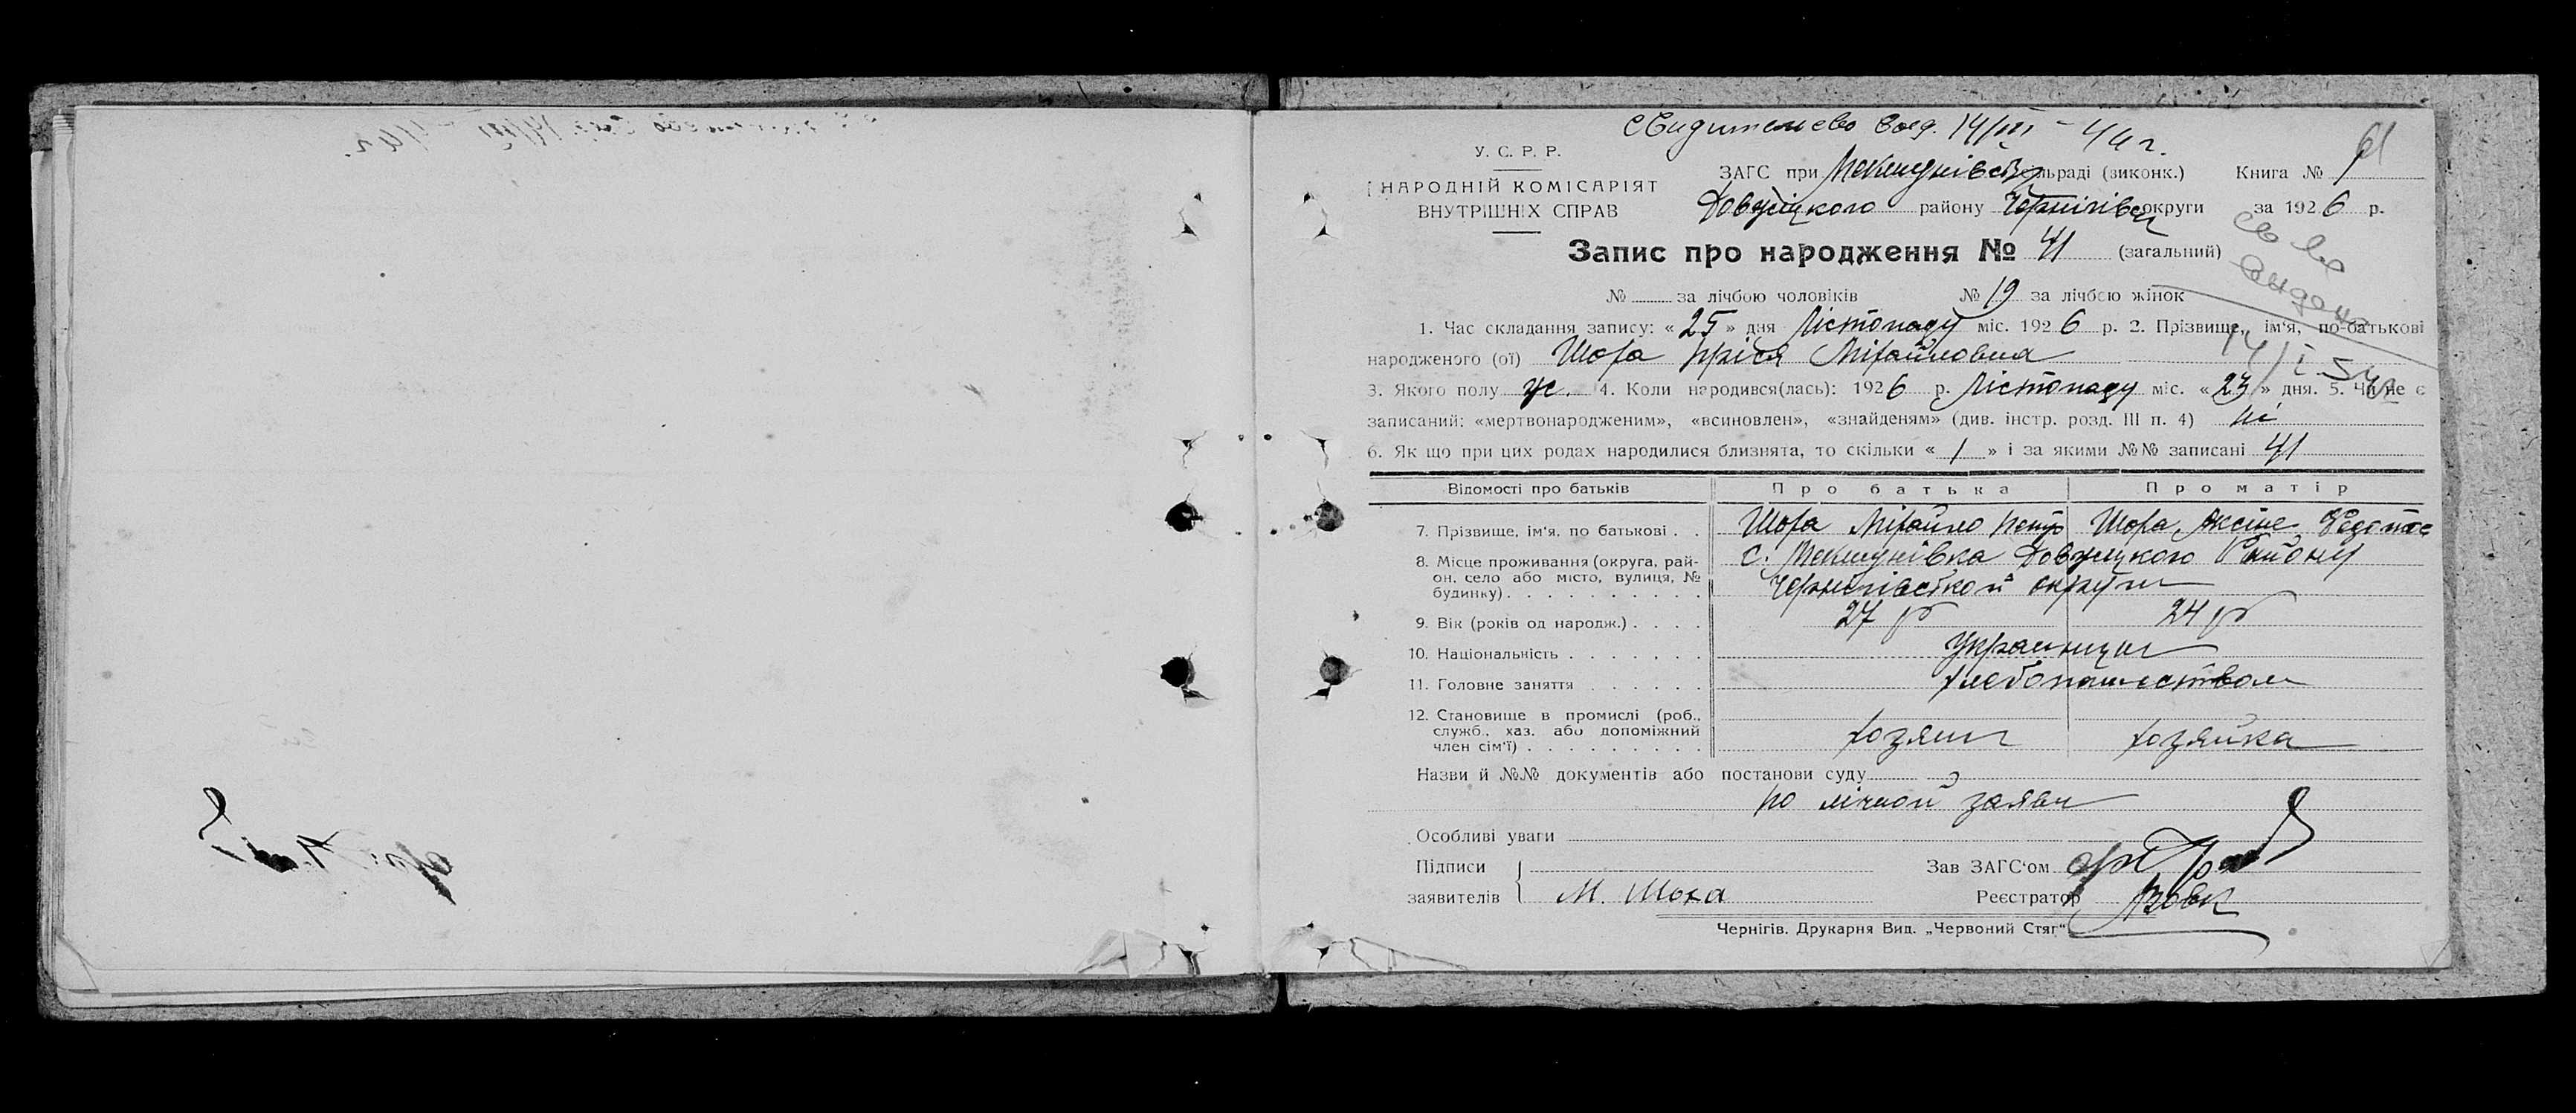 Свидительсво выд. 14/III - 44 г.
61
У. С. Р. Р.
НАРОДНІЙ КОМІСАРІЯТ
ВНУТРІШНІХ СПРАВ
ЗАГС при сільраді (виконк.) Книга № 1
району округи за 1926 р.
Запис про народження № 41 (загальний)
№ за лічбою чоловіків № 19 за лічбою жінок
1. Час складання запису: «25» дня Лістопаду міс. 1926 р. 2. Прізвище, ім'я, по-батькові
народженого (ої) Шоха Міхайловна
3. Якого полу ж. 4. Коли народився(лась): 1926 р. Лістопаду міс. «23» дня. 5. Чи не є
записаний: «мертвонародженим», «всиновлен», «знайденям» (див. інстр. розд. III п. 4) ні
6. Як що при цих родах народилися близнята, то скільки «1» і за якими №№ записані 41
Відомості про батьків Про батька Про матір
7. Прізвище, ім'я, по батькові . . Шоха Міхайло Петр Шоха Федотов
8. Місце проживання (округа, рай-
он, село або місто, вулиця, №
будинку) . . . . . . . . . .
с. Району
округи
9. Вік (років од народж.) . . . . 27 р 24 р
10. Національність . . . . . . . Украинци
11. Головне заняття . . . . . . хлебопашеством
12. Становище в промислі (роб.,
служб., хаз. або допоміжний
член сім'ї) . . . . . . . . . хозяин хозяйка
Назви й №№ документів або постанови суду
по лічной заяви
Особливі уваги
Підписи Зав ЗАГС'ом
заявителів М. Шоха Реєстратор Вовк
Чернігів. Друкарня Вид. „Червоний Стяг"